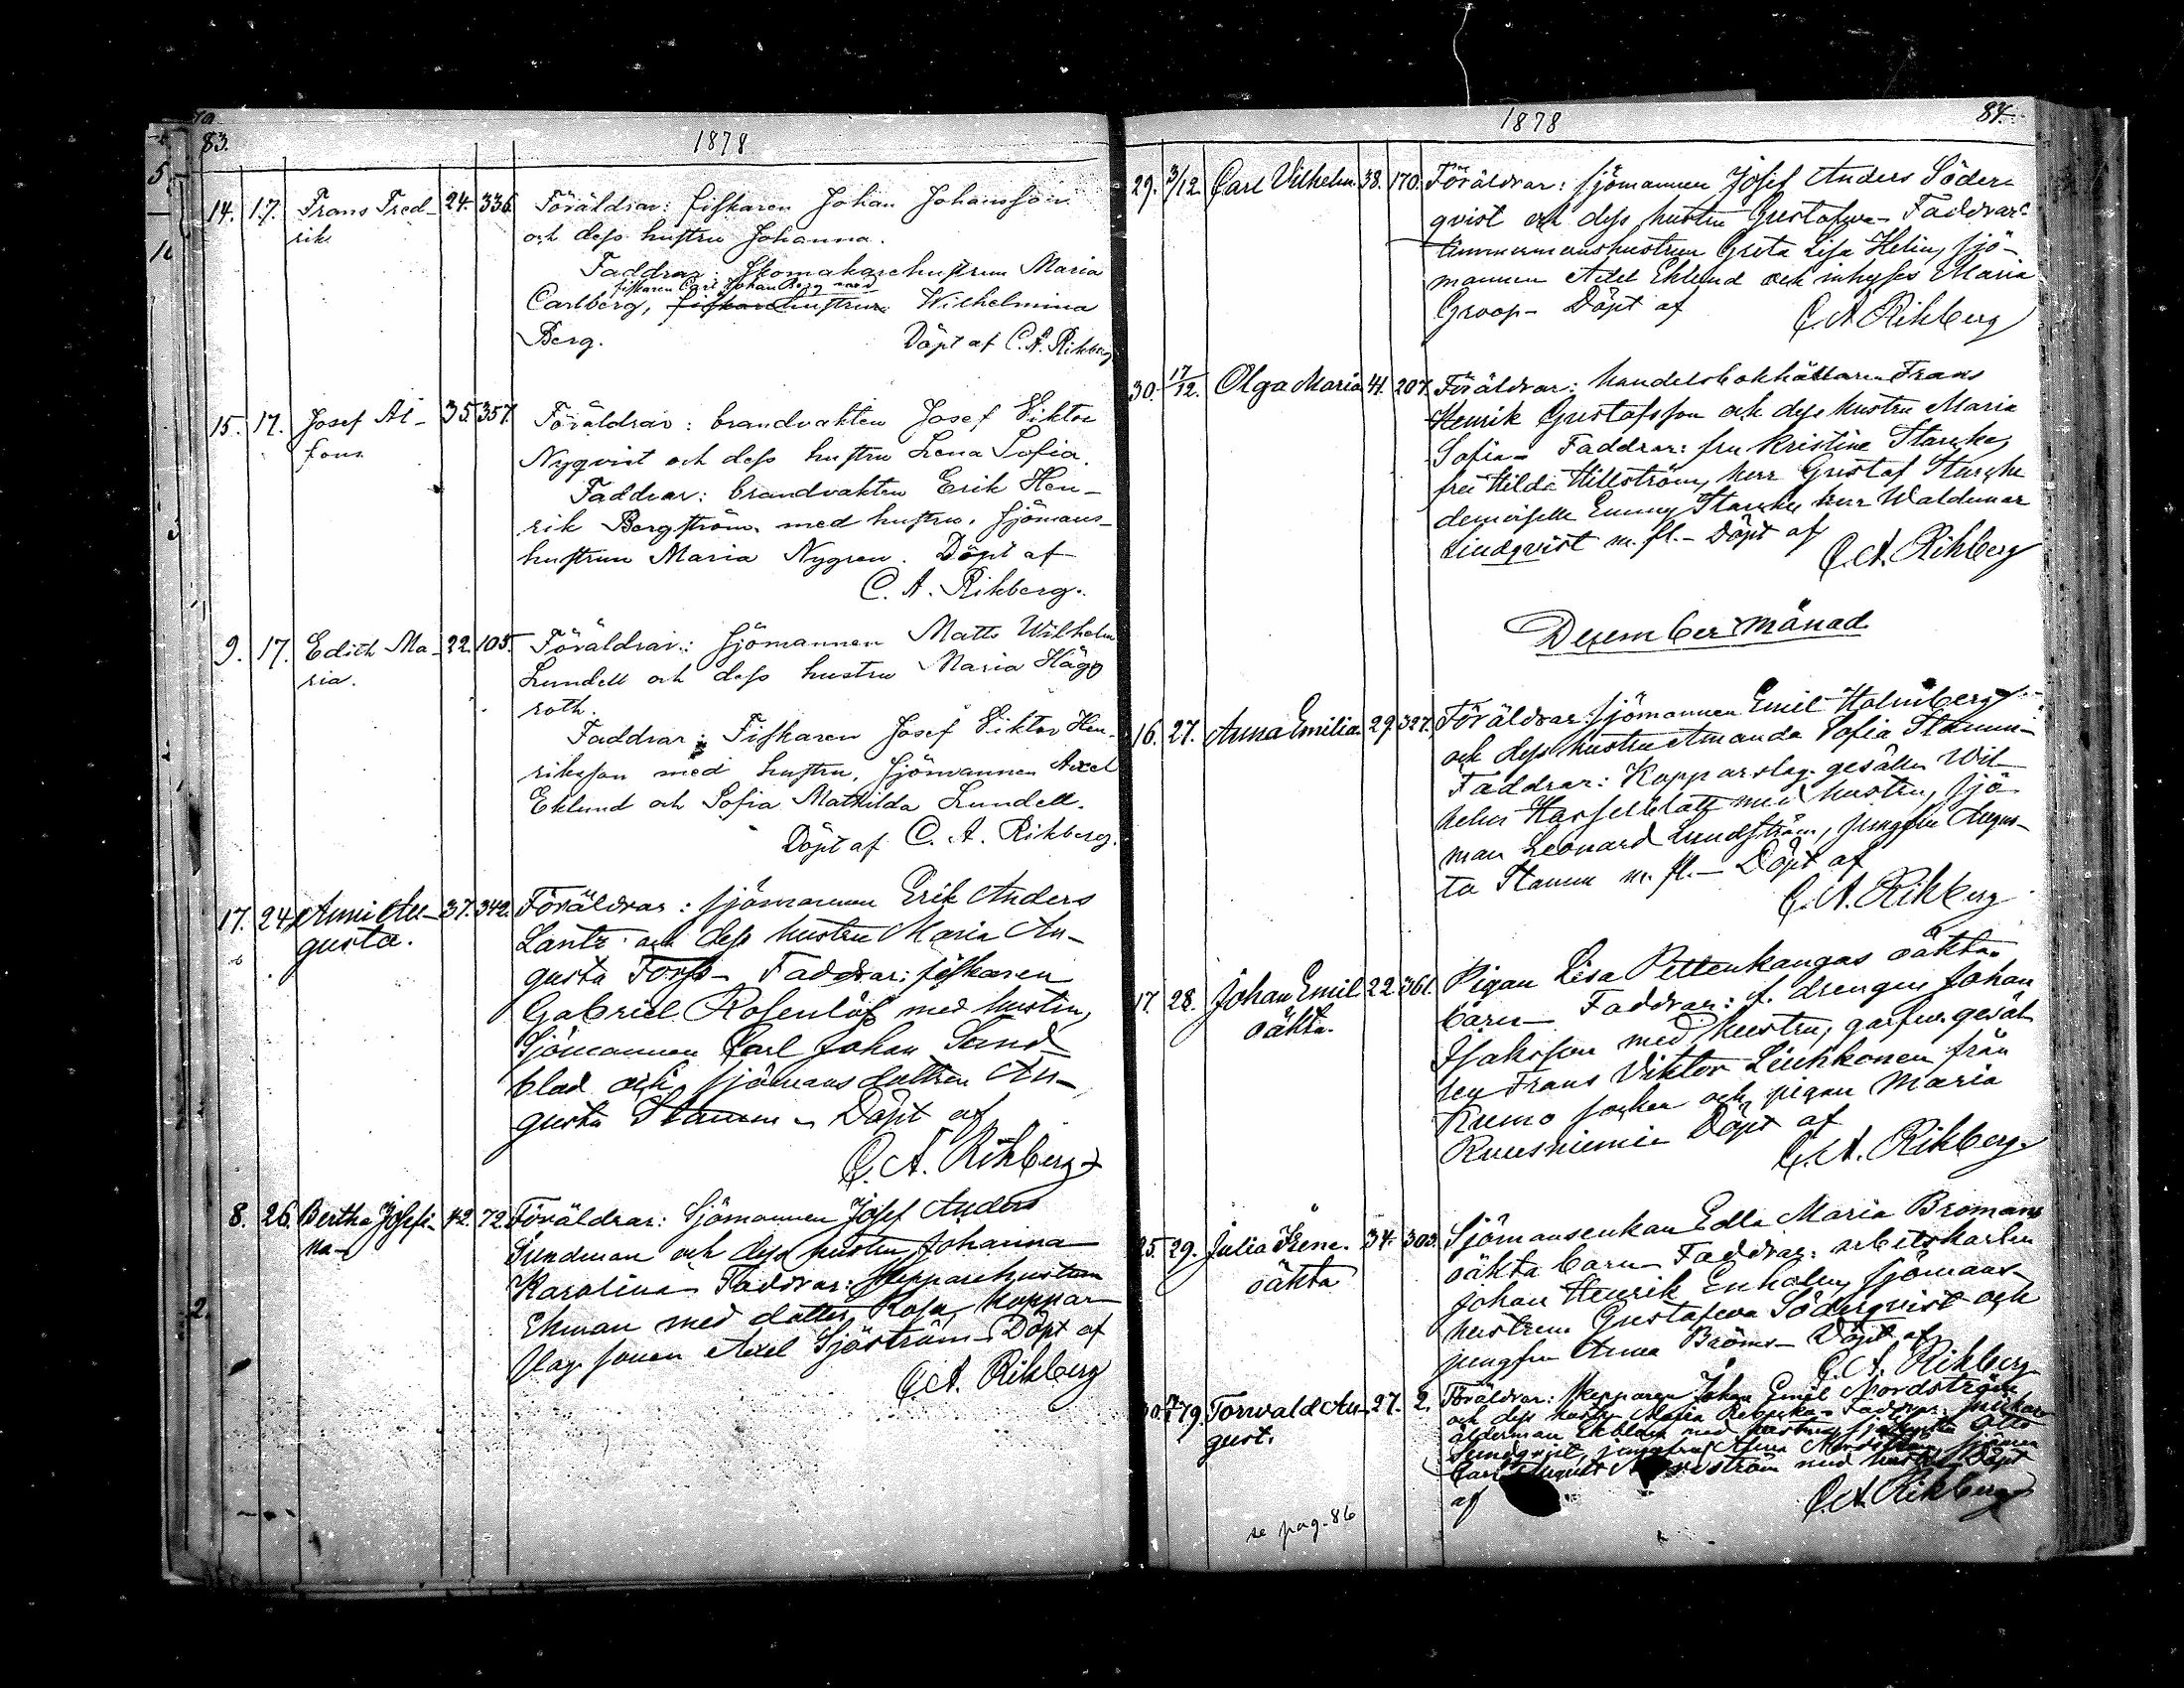 83.
1878
14. 17. Frans Fred- 24. 336. Föräldrar: fiskaren Johan Johansson
rik och dess hustru Johanna.
Faddrar: Skomakarehustrun Maria
fiskaren Carl Johan Berg med
Carlberg, fiskarehustrun Wilhelmina
Berg. Döpt af C. A. Rikberg
15. 17. Josef Al- 35. 357. Föräldrar: brandvakten Josef Viktor
fons Nyqvist och dess hustru Lena Sofia.
Faddrar: brandvakten Erik Hen-
rik Bergström med hustru, sjömans-
hustrun Maria Nygren. Döpt af
C. A. Rikberg.
9. 17. Edith Ma- 22. 105. Föräldrar: Sjömannen Matts Wilhelm
ria. Lundell och dess hustru Maria Hägg
roth.
Faddrar: Fiskaren Josef Viktor Hen-
riksson med hustru, sjömannen Axel
Eklund och Sofia Mathilda Lundell.
Döpt af C. A. Rikberg.
17. 24. Anni Au- 37. 342. Föräldrar: sjömannen Erik Anders
gusta. Lantz och dess hustru Maria Au-
gusta Forss- Faddrar: fiskaren
Gabriel Rosenlöf med hustru,
Sjömannen Carl Johan Sand
blad och sjömansdottren Au-
gusta Stamm - Döpt af
C. A. Rikberg
8. 26. Bertha Josefi- 42. 72. Föräldrar: Sjömannen Josef Anders
na- Sundman och dess hustru Johanna
Karolina- Faddrar: Skepparehustrun
Ekman med dotter Rosa, koppar-
slag. sonen Axel Sjöström- Döpt af
C. A. Rikberg
1878
84.
29. 3/12. Carl Vilhelm. 38. 170. Föräldrar: sjömannen Josef Anders Söder-
qvist och dess hustru Gustafva- Faddrar:
timmermanshustrun Greta Lisa Helin, sjö-
mannen Axel Eklund och inhyses Maria
Groop- Döpt af
C. A. Rikberg
30. 17/12. Olga Maria 41. 207. Föräldrar: handelsbokhållaren Frans
Henrik Gustafsson och dess hustru Maria
Sofia- Faddrar: fru Kristine
fru Hilda Hillström, herr Gustaf
demoiselle Emmy herr Waldemar
Lindqvist m. fl.- Döpt af
C. A. Rikberg
December månad
16. 27. Anna Emilia. 29. 327. Föräldrar: sjömannen Emil Holmberg
och dess hustru Amanda Sofia Stamm-
Faddrar: Kopparslag. gesällen Wil-
helm Hasselblatt med hustru, sjö-
man Leonard Lundström, jungfru Augus-
ta Stamm m. fl.- Döpt af
C. A. Rikberg
17. 28. Johan Emil 22. 361. Pigan Lisa Pettenkangas oäkta
oäkta. barn- Faddrar: f. drengen Johan
Isaksson med hustru, garfvaregesäl-
len Frans Viktor Linkkonen från
Kumo socken och pigan Maria
Ruusniemi Döpt af
C. A. Rikberg.
25. 29. Julia Irene. 34. 303. Sjömansenkan Edla Maria Bromans
oäkta oäkta barn- Faddrar: arbetskarlen
Johan Henrik Enholm, sjömans-
hustrun Gustafva Söderqvist och
jungfru Anna Bröms- Döpt af
C. A. Rikberg
79. Torwald Au- 27. 2. Föräldrar: Skepparen Johan Emil Nordström
gust. och dess hustru Maria Rebecka- Faddrar:
ålderman Ekblom med hustru, Otto
Sundqvist, jungfru
Carl August med hustru Döpt
af C. A. Rikberg
se pag. 86